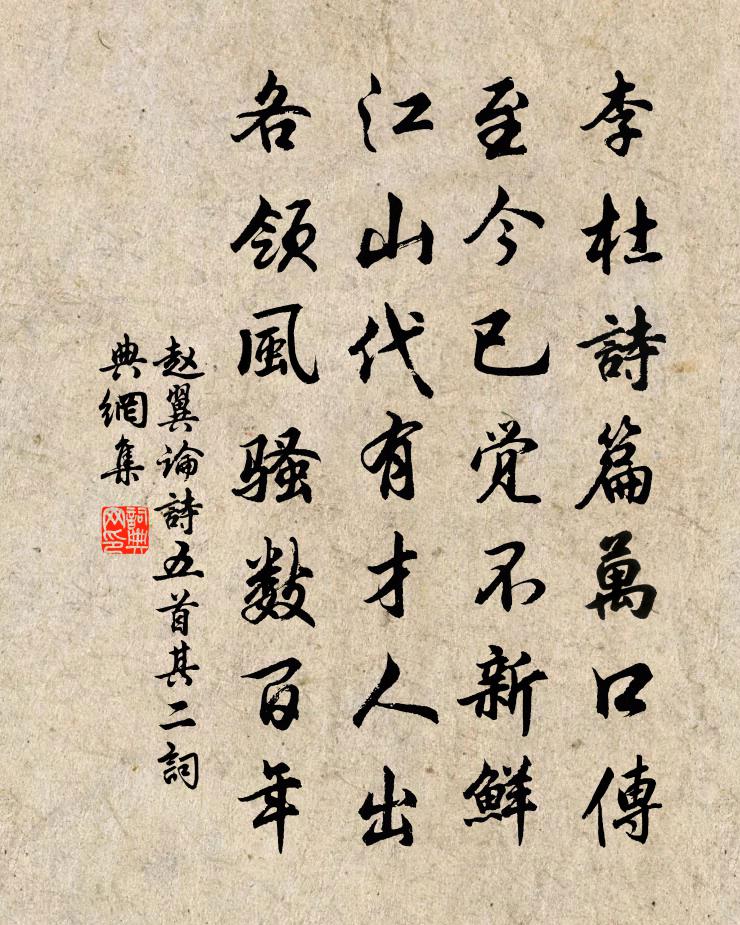 李杜詩篇萬口傳
至今已觉不新鮮
江山代有才人出
各领風骚数百年
赵翼论詩五首其二詞
典網集
詞典网印